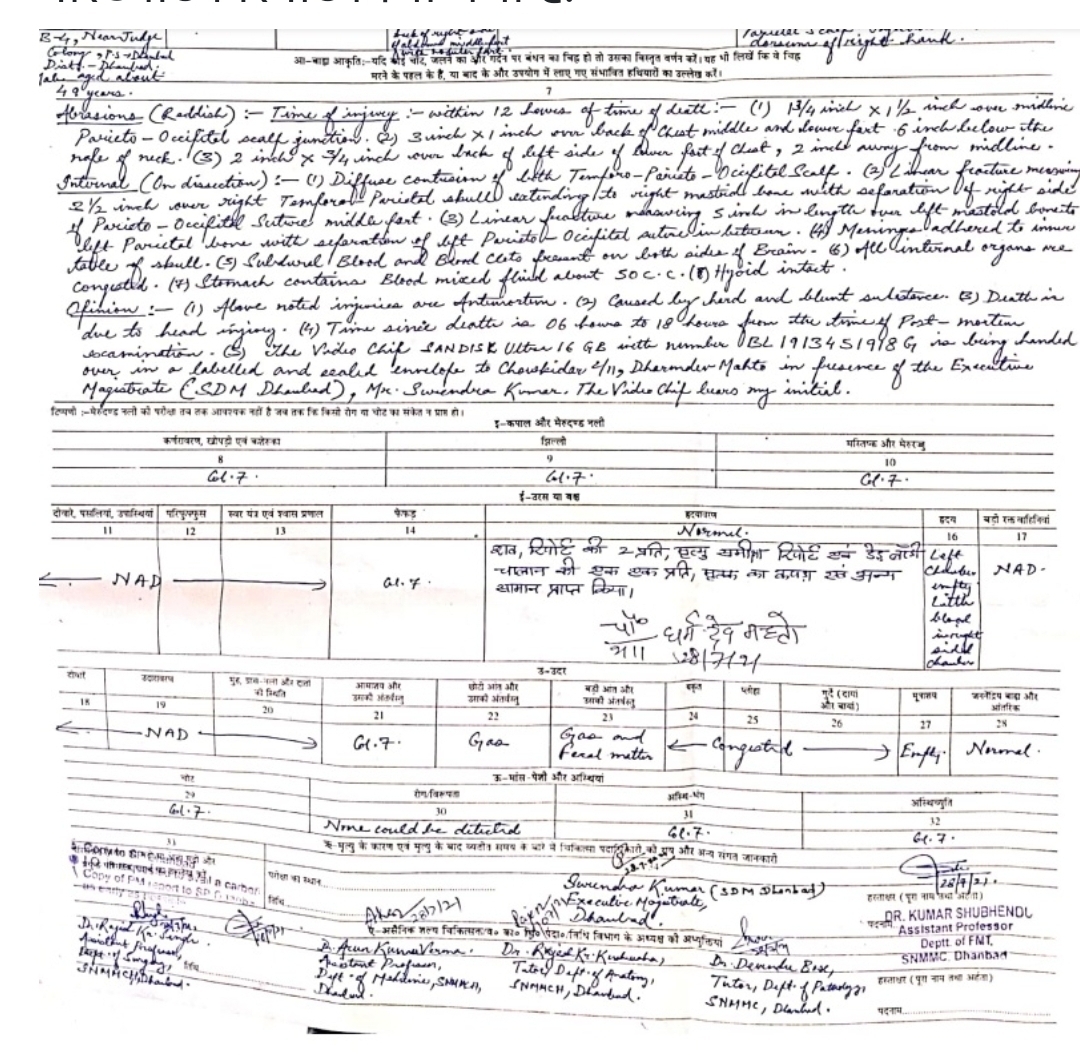 B-4, Near Judge
Colony, P.S-Dhanbad
Distt.- Dhanbad.
Male aged about
49 years.
back of right
of abdomen middle part
dorsum of right hand.
आ-बाह्य आकृति:-यदि कोई चोट, जलने का और गर्दन पर बंधन का चिह्न हो तो उसका विस्तृत वर्णन करें। यह भी लिखें कि ये चिह्न
मरने के पहल के है, या बाद के और उपयोग में लाए गए संभावित हथियारों का उल्लेख करें।
7
Abrasions (Reddish) :- Time of injury :- within 12 hours of time of death :- (1) 1 3/4 inch x 1 1/2 inch over midline
Parieto-Occipital scalp junction. (2) 3 inch x 1 inch over back of Chest middle and lower part 6 inch below the
nape of neck. (3) 2 inch x 3/4 inch over back of left side of lower part of Chest, 2 inch away from midline.
Internal (On dissection) :- (1) Diffuse contusion of both Temporo-Parieto-Occipital Scalp. (2) Linear fracture measuring
2 1/2 inch over right Temporo-Parietal skull extending to right mastoid bone with separation of right side
of Parieto-Occipital Suture middle part. (3) Linear fracture measuring 5 inch in length over left mastoid bone to
left Parietal bone with separation of left Parieto-Occipital suture in between. (4) Meninges adhered to inner
table of skull. (5) Subdural Blood and Blood Clots present on both sides of Brain. (6) All internal organs are
congested. (7) Stomach contains Blood mixed fluid about 50 c.c. (8) Hyoid intact.
Opinion :- (1) Above noted injuries are Antimortem. (2) Caused by hard and blunt substance. (3) Death is
due to head injury. (4) Time since death is 06 hours to 18 hours from the time of Post-mortem
examination. (5) The Video Chip SANDISK Ultra 16 GB with number BL1913451918G is being handed
over in a labelled and sealed envelope to Chowkidar 4/11, Dharmdev Mahto in presence of the Executive
Magistrate (SDM Dhanbad), Mr. Surendra Kumar. The Video Chip bears my initial.
टिप्पणी :-मेरुदण्ड नली की परीक्षा तब तक आवश्यक नहीं है जब तक कि किसी रोग या चोट का संकेत न प्राप्त हो।
इ-कपाल और मेरुदण्ड नली
कर्परावरण, खोपड़ी एवं कशेरुका झिल्ली मस्तिष्क और मेरुरज्जु
8 9 10
Col.7. Col.7. Col.7.
ई-उरस या वक्ष
दीवारें, पसलियां, उपास्थियां परिफुफ्फुस स्वर यंत्र एवं स्वास प्रणाल फेफड़ हृदयावरण हृदय बड़ी रक्त वाहिनियां
11 12 13 14 Normal. 16 17
NAD Col.7. NAD.
शव, रिपोर्ट की 2 प्रति, मृत्यु समीक्षा रिपोर्ट एवं डेड बॉडी
चालान की एक एक प्रति, मृतक का कपड़ा एवं अन्य
सामान प्राप्त किया।
Left
Chamber
empty
Little
blood
in right
side
chamber
चौ० 4/11 धर्म देव महतो
28/7/21
उ-उदर
18 19 20 21 22 23 24 25 26 27 28
NAD Col.7. Gas Gas and Fecal matter Congested Empty. Normal.
ऊ-मांस-पेशी और अस्थियां
चोट रोग/विरूपता अस्थि-भंग अस्थिच्युति
29 30 31 32
Col.7. None could be detected Col.7. Col.7.
33
परीक्षा का स्थान
Surendra Kumar (SDM Dhanbad)
Executive Magistrate,
Dhanbad.
28/7/21
हस्ताक्षर (पूरा नाम तथा अर्हता)
DR. KUMAR SHUBHENDU
पदनाम. Assistant Professor
Deptt. of FMT,
SNMMC, Dhanbad
Assistant Professor,
Dept. of Surgery,
SNMMCH, Dhanbad.
Dr. Arun Kumar Verma.
Assistant Professor,
Dept. of Medicine, SNMMCH,
Dhanbad.
Tutor, Dept. of Anatomy,
SNMMCH, Dhanbad.
Tutor, Dept. of Pathology,
SNMMC, Dhanbad.
हस्ताक्षर (पूरा नाम तथा अर्हता)
पदनाम